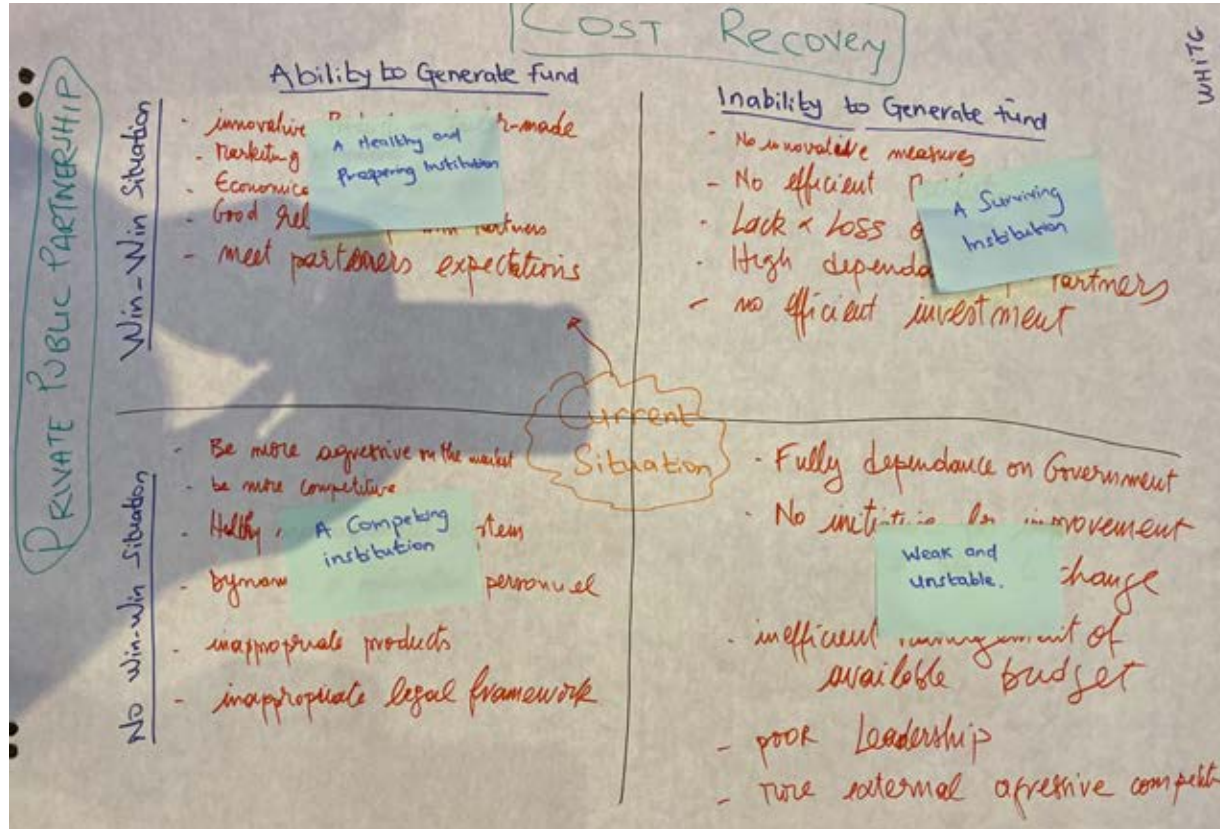 COST Recovery
WHITE
PRIVATE PUBLIC PARTNERSHIP
Ability to Generate fund
Inability to Generate fund
Win-Win Situation
- innovative r-made
- Marketing
- Economica
- Good rel with Partners
- meet partners expectations
A Healthy and
Prospering Institution
- No innovative measures
- No efficient
- Lack & Loss
- High dependa Partners
- no efficient investment
A Surviving
Institution
Current
Situation
No Win-Win Situation
- Be more agressive on the market
- be more competitive
- Helthy stem
- Dynam personnel
- inappropriate products
- inappropriate legal framework
A Competing
institution
- Fully dependance on Government
- No initiative for improvement
change
- inefficient management of
available budget
- poor Leadership
- more external agressive competit
Weak and
unstable.